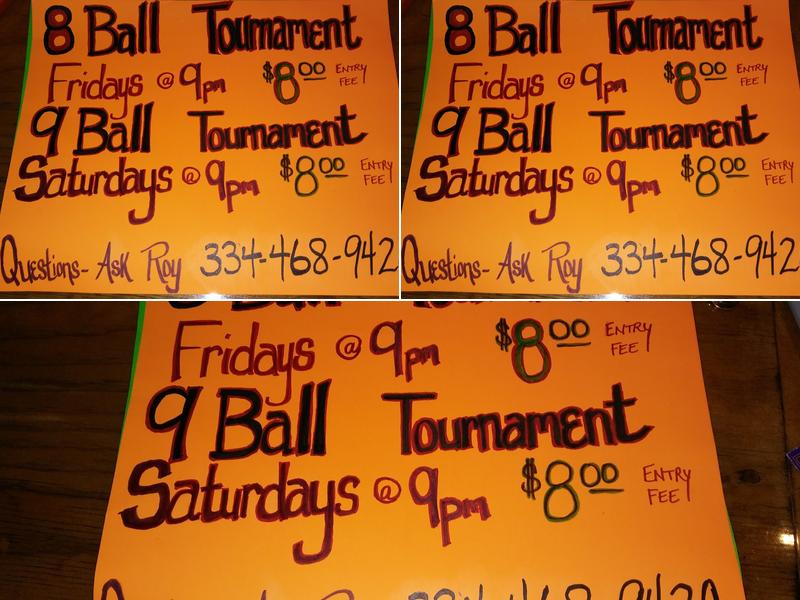 8 Ball Tournament
Fridays @ 9pm $8.00 Entry Fee
9 Ball Tournament
Saturdays @ 9pm $8.00 Entry Fee
Questions- Ask Roy 334-468-942
8 Ball Tournament
Fridays @ 9pm $8.00 Entry Fee
9 Ball Tournament
Saturdays @ 9pm $8.00 Entry Fee
Questions- Ask Roy 334-468-942
Fridays @ 9pm $8.00 Entry Fee
9 Ball Tournament
Saturdays @ 9pm $8.00 Entry Fee